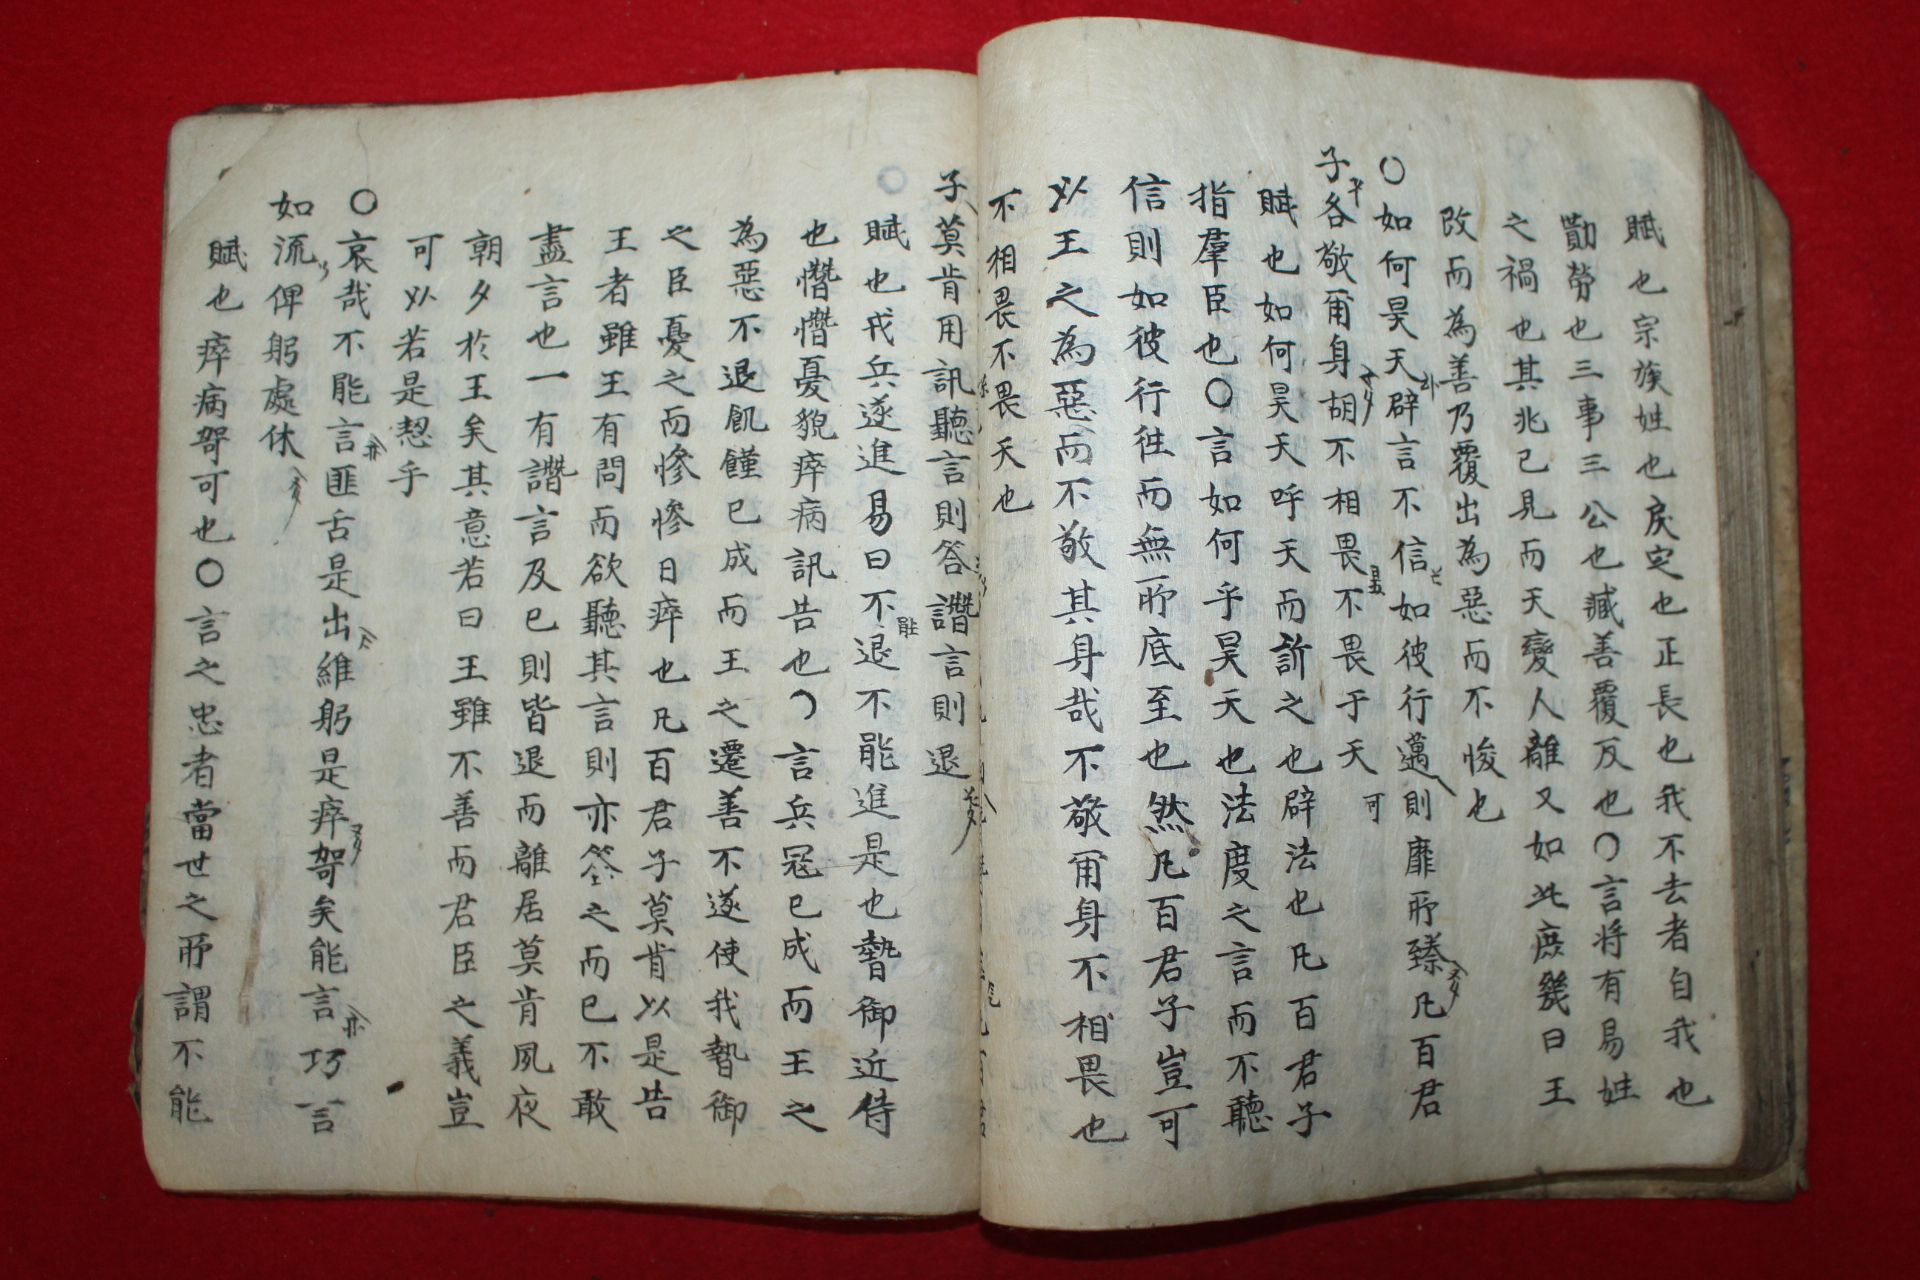 賦也宗族姓也戾定也正長也我不去者自我也
勩勞也三事三公也臧善覆反也○言将有易姓
之禍也其兆已見而天變人離又如此庶幾曰王
改而為善乃覆出為惡而不悛也
○如何昊天辟言不信如彼行邁則靡所臻凡百君
子各敬甫身胡不相畏不畏于天
賦也如何昊天呼天而訴之也辟法也凡百君子
指羣臣也○言如何乎昊天也法度之言而不聽
信則如彼行徃而無所底至也然凡百君子豈可
以王之為惡而不敬其身哉不敬甫身不相畏也
不相畏不畏天也
子莫肯用訊聽言則答譖言則退
賦也戎兵遂進易曰不退不能進是也暬御近侍
也憯憯憂貌瘁病訊告也○言兵冦已成而王之
為惡不退飢饉已成而王之遷善不遂使我暬御
之臣憂之而慘慘日瘁也凡百君子莫肯以是告
王者雖王有問而欲聽其言則亦答之而已不敢
盡言也一有譖言及已則皆退而離居莫肯夙夜
朝夕於王矣其意若曰王雖不善而君臣之義豈
可以若是恝乎
○哀哉不能言匪舌是出維躬是瘁哿矣能言巧言
如流俾躬處休
賦也瘁病哿可也○言之忠者當世之所謂不能